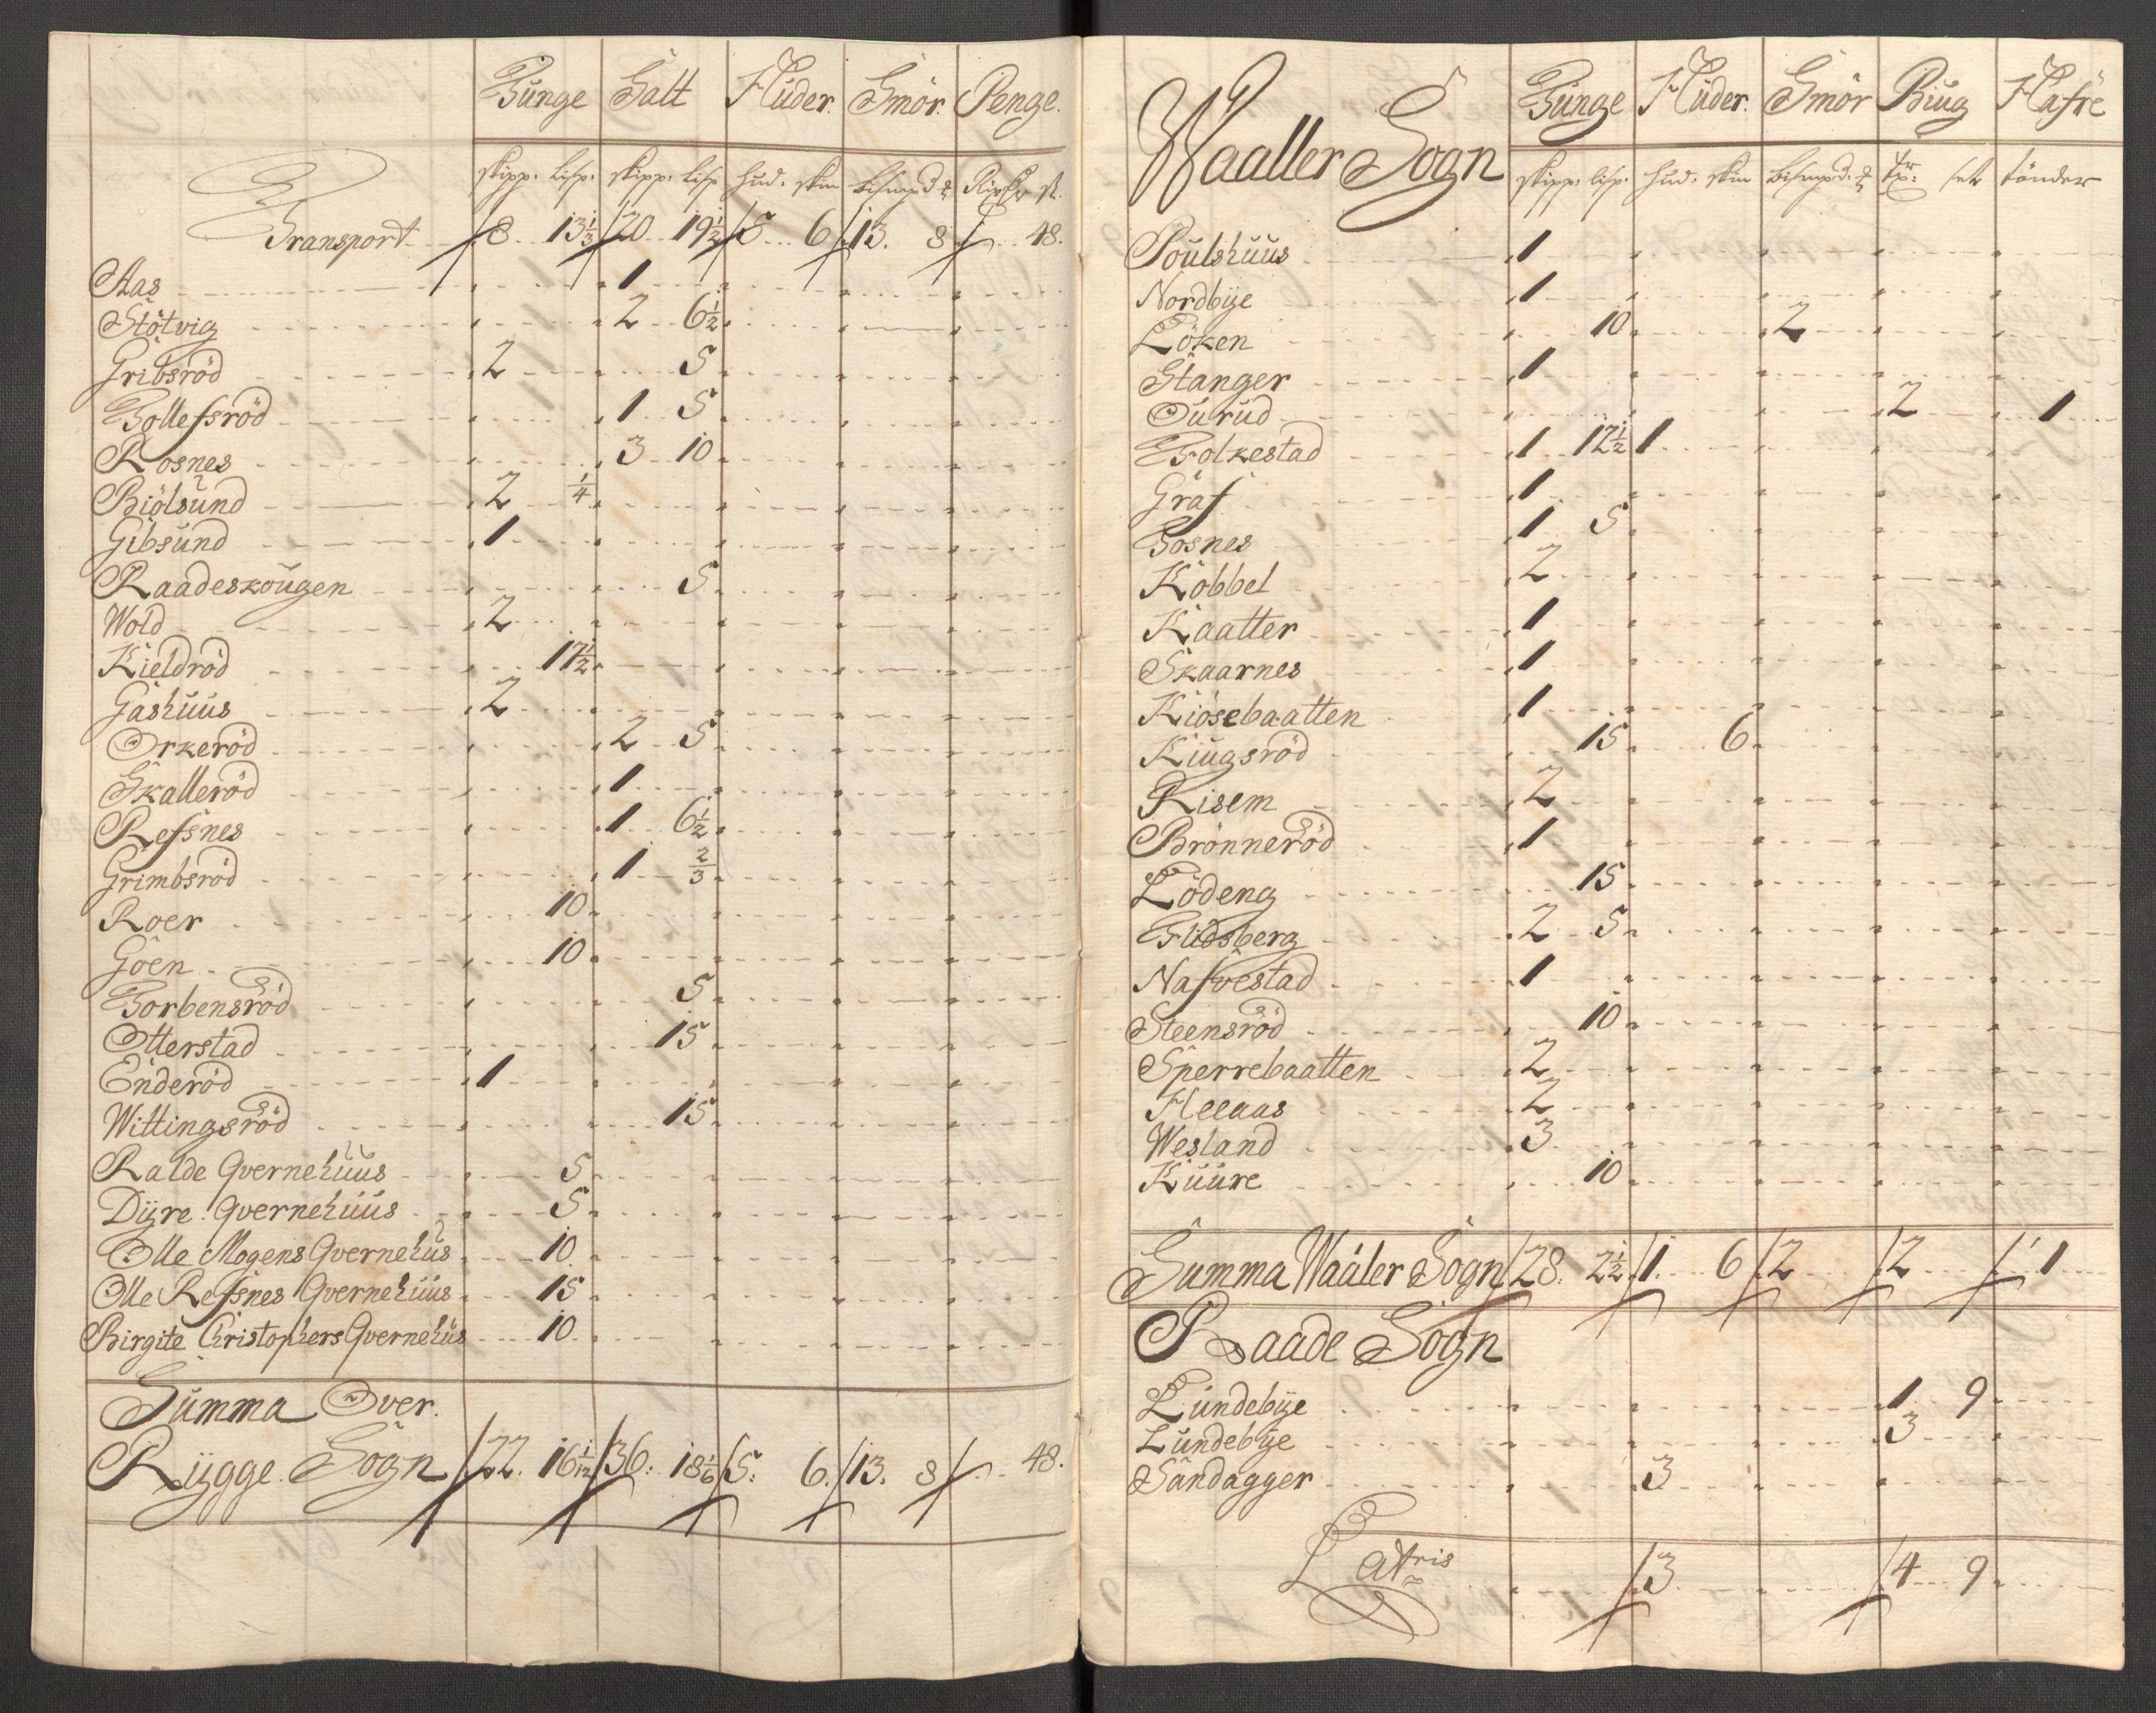 Tünge Salt Hüder. Smör. Penge.
skipp. lisp. skipp. lisp hud. skin
Transport 8 13 1/3 20 19 1/2 5 6 13. 8 48.
Aas 1
Stötvig 2 6 1/2
Gribsröd 2 5
Tollefsröd 1 5
Rosnes 3 10
Biölsünd 2 1/4
Gibsünd 1
Raadeskougen 5
Wold 2
Kieldröd 17 1/2
Gashüüs 2
Orkeröd 2 5
Skalleröd 1
Refsnes 1 6 1/2
Grimbsröd 1 2/3
Roer 10
Goen 10
Torbensröd 5
Otterstad 15
Enderöd 1
Wittingsröd 15
Ralde Qvernehüüs 5
Dÿre Qvernehüüs 5
Olle Mogens Qvernehüs 10
Olle Refsnes Qvernehüüs 15
Birgite Christophers Qvernehüs 10
Summa Over.
Rÿgge Sogn 22. 16 1/12 36. 18 1/6 5: 6. 13. 8 48.
Waaller Sogn
Tünge Hüder. Smör Biug Hafre
skipp: lisp. hud. skin tönder
Poülshüüs 1
Nordbÿe 1
Löken 10 2
Stanger 1
Surüd 2 1
Folkestad 1 12 1/2 1
Graf 1
Tosnes 1 5
Kobbel 2
Kaatter 1
Skaarnes 1
Kiösebaatten 1
Kiügsröd 15 6
Risem 2
Brönneröd 1
Lödeng 15
Flüdsberg 2 5
Nafvestad 1
Steensröd 10
Sperrebaatten 2
Heeaas 2
Wesland 3
Küüre 10
Summa Waaler Sogn 28. 2 1/2 1. 6 2 2 1
Raade Sogn
Lündebÿe 1 9
Lündebÿe 3
Sandagger 3
Latris 3 4 9